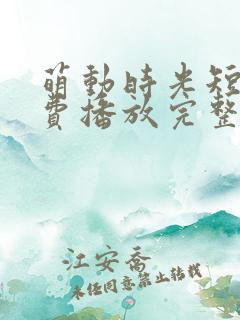 萌動時光短
費播放完整
江安喬
未經同意禁止轉載